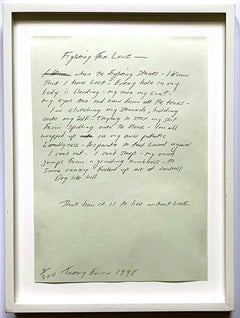 Fighting For Love —
when the fighting starts - I know
That I have Lost - Every hole in my
body is bleeding - my nose my cunt -
my eyes are red raw from all the tears -
I'm clutching my stomach, holding
onto my self - Trying to stop my shit
from spilling onto the floor - I'm all
wrapped up in my own pathetic
Lonelyness - Desperate to feel Loved again
I cant eat - I cant sleep - my mind
jumps from a grinding numbness - to
some crazey fucked up out of control
Dog like hell
Thats how it is to live without Love.
/200 Tracey Emin 1998